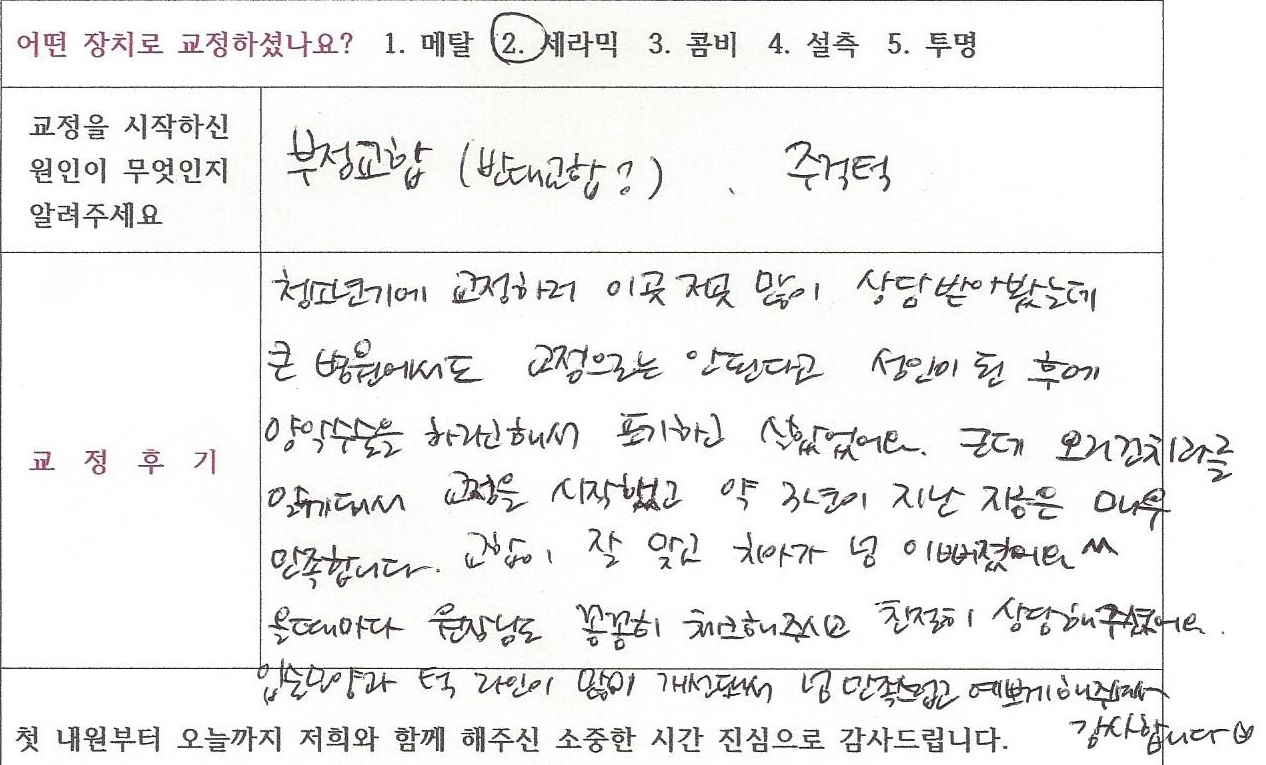 어떤 장치로 교정하셨나요? 1. 메탈 2. 세라믹 3. 콤비 4. 설측 5. 투명
교정을 시작하신
원인이 무엇인지
알려주세요
부정교합 (반대교합?) . 주걱턱
교정후기
청소년기에 교정하러 이곳 저곳 많이 상담받아봤는데
큰 병원에서도 교정으로는 안된다고 성인이 된 후에
양악수술을 하라고해서 포기하고 살았었어요. 근데 오리건치과를
알게되서 교정을 시작했고 약 3년이 지난 지금은 매우
만족합니다. 교합이 잘 맞고 치아가 넘 이뻐졌어요^^
올때마다 원장님도 꼼꼼히 체크해주시고 친절히 상담해주셨어요.
입술모양과 턱 라인이 많이 개선되서 넘 만족스럽고 예쁘게해주셔서
감사합니다
첫 내원부터 오늘까지 저희와 함께 해주신 소중한 시간 진심으로 감사드립니다.